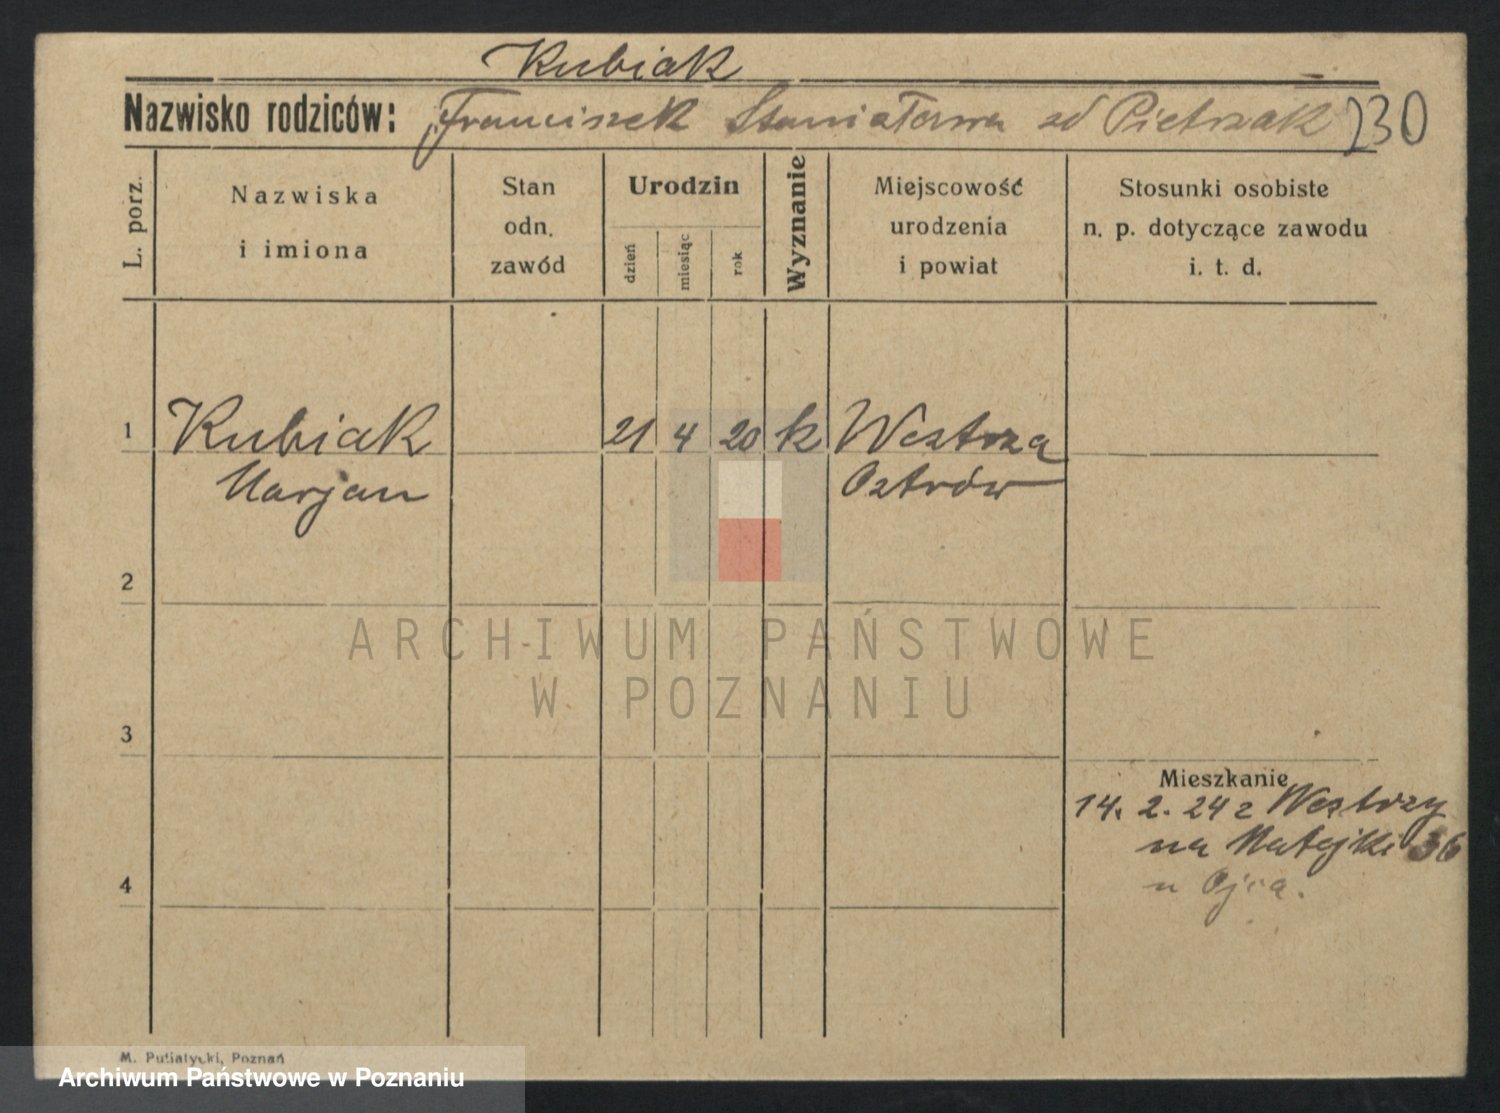 Kubiak
Nazwisko rodziców: Franciszek Stanisława zd Pietrzak 230
L. porz.
Nazwiska
i imiona
Stan
odn.
zawód
Urodzin
dzień
miesiąc
rok
Wyznanie
Miejscowość
urodzenia
i powiat
Stosunki osobiste
n. p. dotyczące zawodu
i. t. d.
1 Kubiak 21 4 20 k Westrza
Marjan Ostrów
2
ARCHIWUM PAŃSTWOWE
W POZNANIU
3
Mieszkanie
14. 2. 24 z Westrzy
na Matejki 36
u Ojca.
4
M. Putiatycki, Poznań
Archiwum Państwowe w Poznaniu